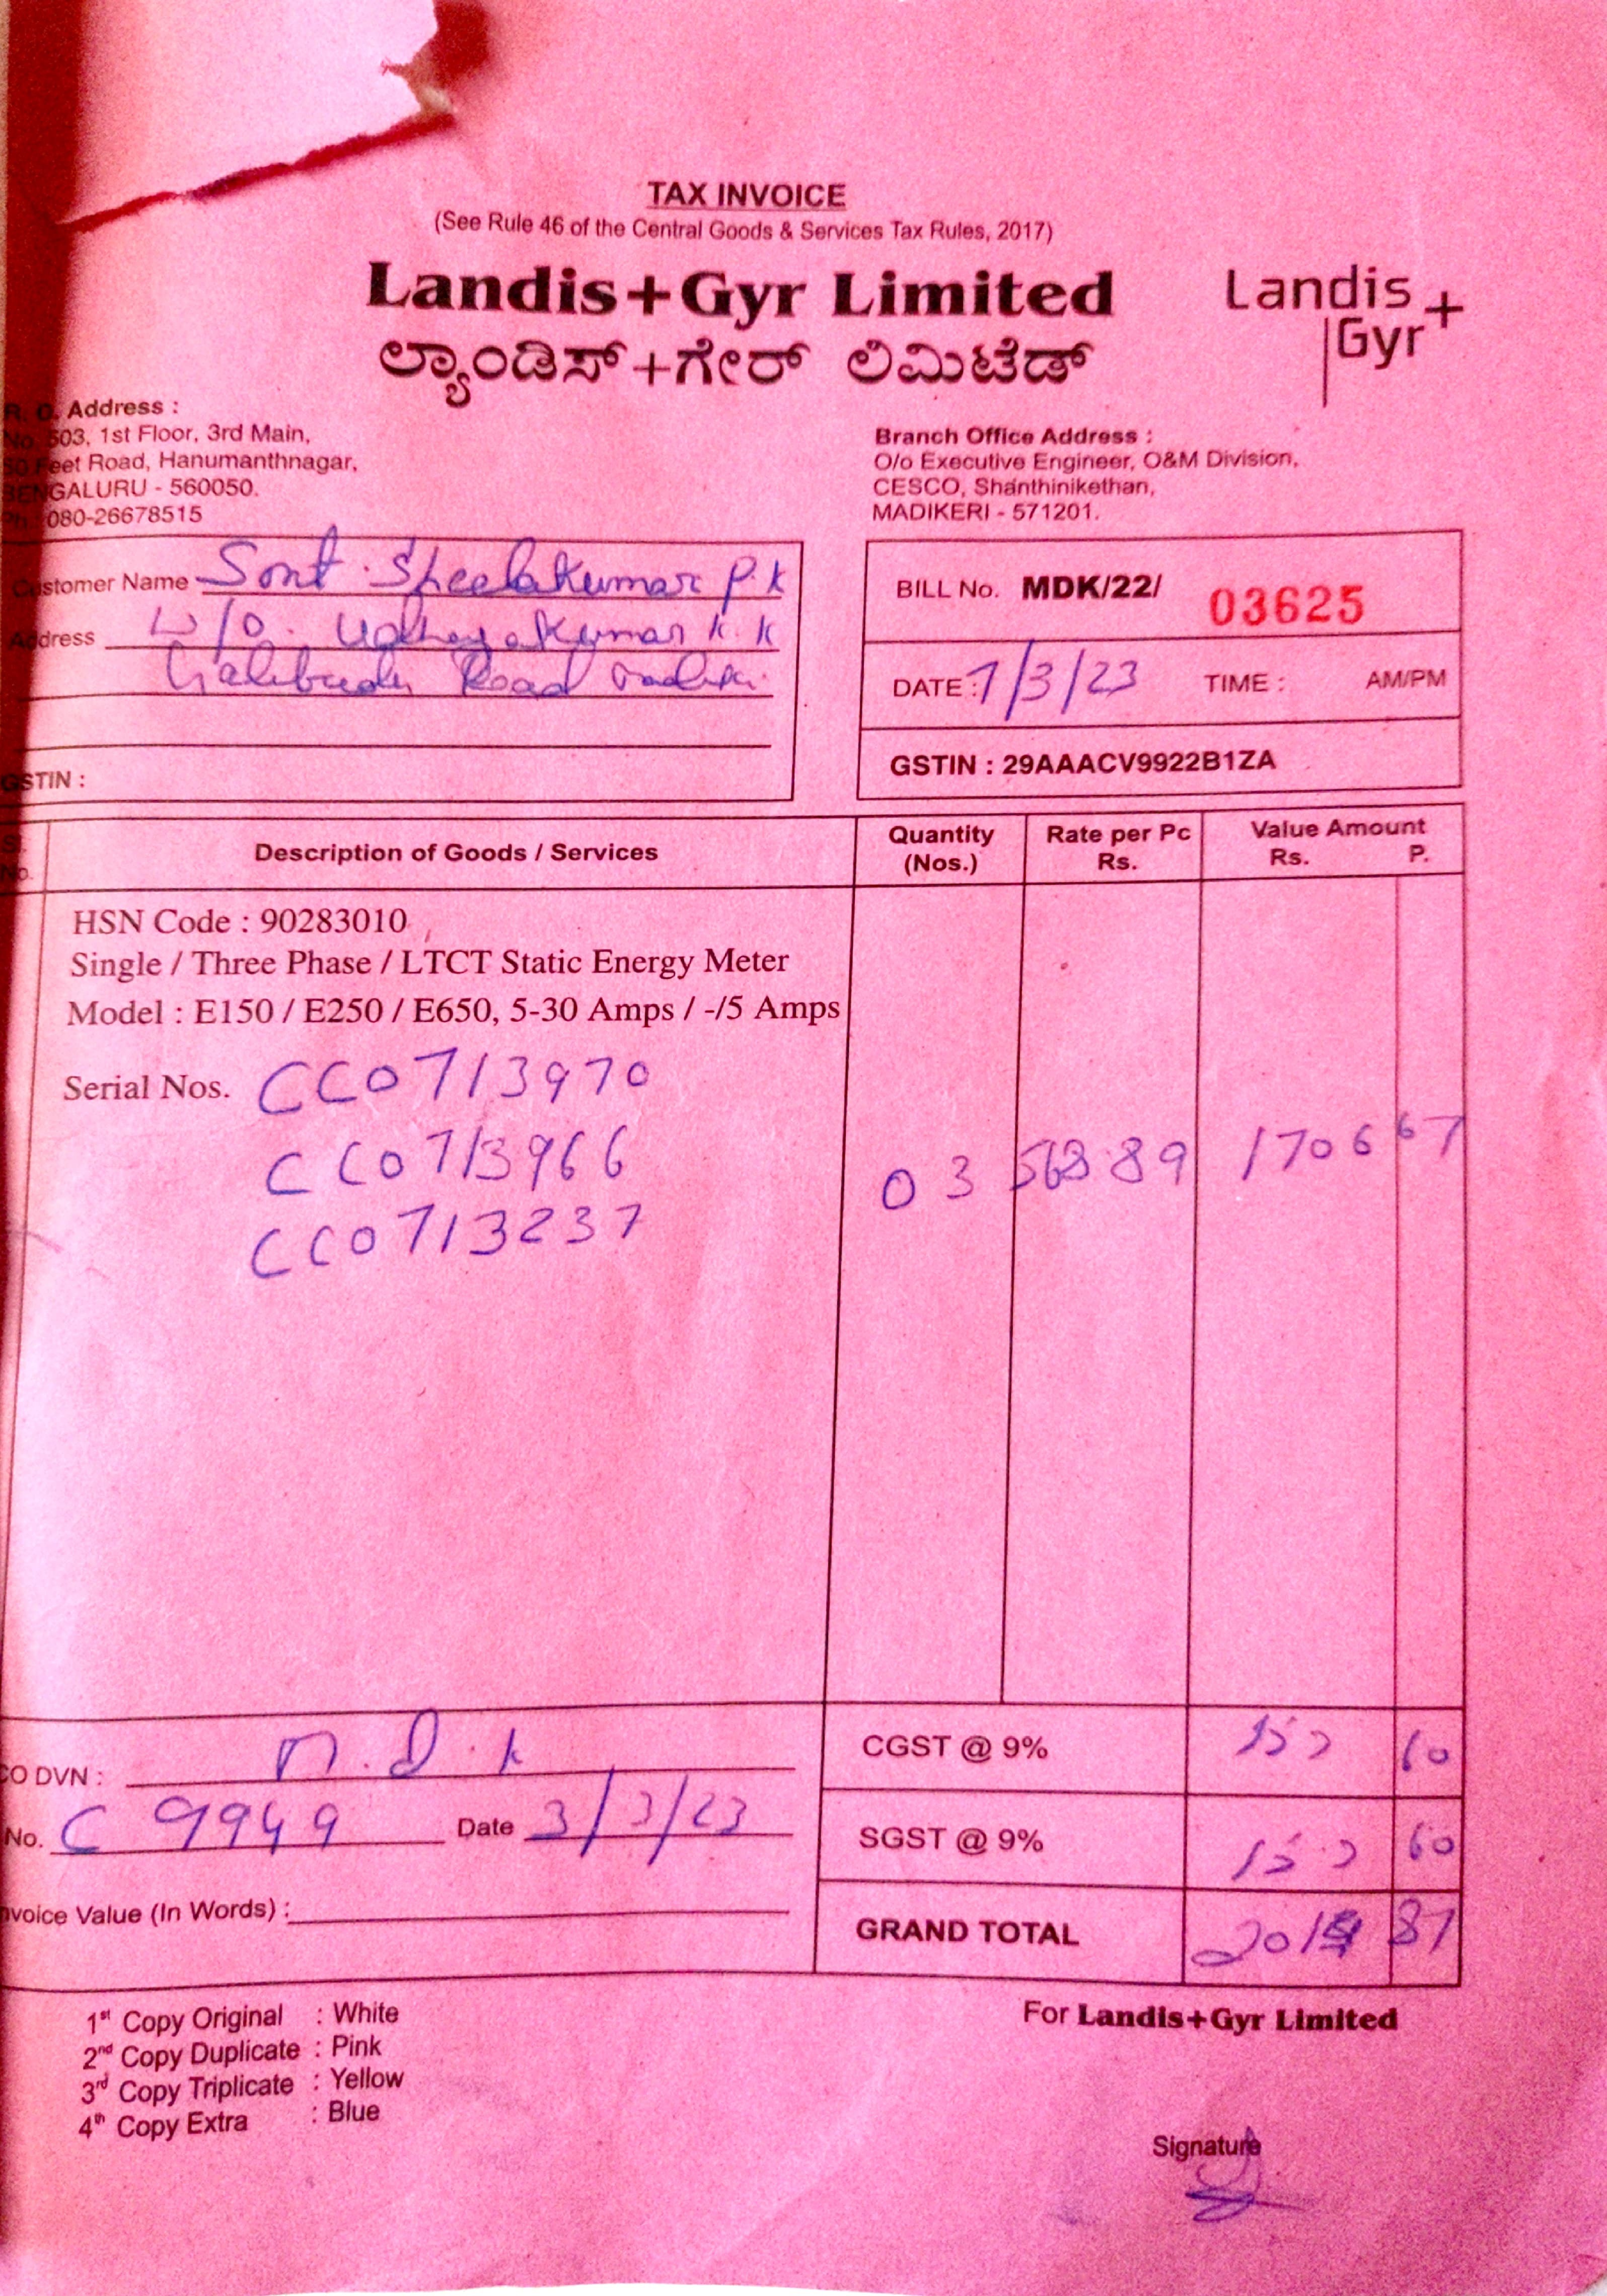 TAX INVOICE
(See Rule 46 of the Central Goods & Services Tax Rules, 2017)
Landis+Gyr Limited
Landis
Gyr+
ಲ್ಯಾಂಡಿಸ್+ಗೇರ್ ಲಿಮಿಟೆಡ್
R. O. Address :
No. 503, 1st Floor, 3rd Main,
50 Feet Road, Hanumanthnagar,
BENGALURU - 560050.
Ph. 080-26678515
Branch Office Address :
O/o Executive Engineer, O&M Division,
CESCO, Shanthinikethan,
MADIKERI - 571201.
Customer Name Smt. Sheelakumar P.K
Address W/O. Udhayakumar K.K
Road
GSTIN :
BILL No. MDK/22/ 03625
DATE : 7/3/23 TIME : AM/PM
GSTIN : 29AAACV9922B1ZA
Sl. No. Description of Goods / Services Quantity (Nos.) Rate per Pc Rs. Value Amount Rs. P.
HSN Code : 90283010
Single / Three Phase / LTCT Static Energy Meter
Model : E150 / E250 / E650, 5-30 Amps / -/5 Amps
Serial Nos. CC0713970
CC0713966 03 568.89 1706 67
CC0713237
O DVN : M.D.K
No. C 9949 Date 3/3/23
Invoice Value (In Words) :
CGST @ 9% 153 60
SGST @ 9% 153 60
GRAND TOTAL 87
1st Copy Original : White
2nd Copy Duplicate : Pink
3rd Copy Triplicate : Yellow
4th Copy Extra : Blue
For Landis+Gyr Limited
Signature